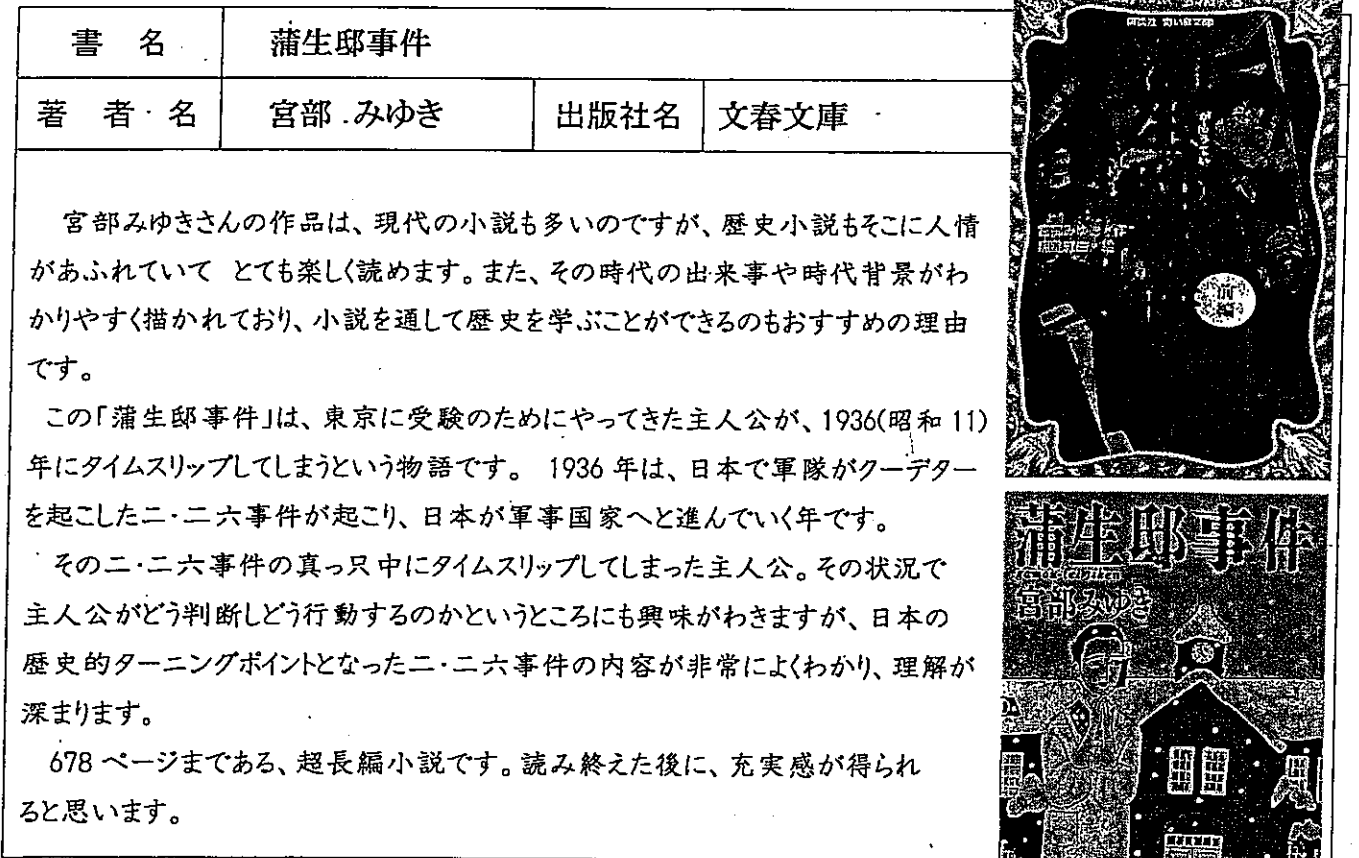 書 名 蒲生邸事件
著 者 名 宮部 みゆき 出版社名 文春文庫
宮部みゆきさんの作品は、現代の小説も多いのですが、歴史小説もそこに人情
があふれていて とても楽しく読めます。また、その時代の出来事や時代背景がわ
かりやすく描かれており、小説を通して歴史を学ぶことができるのもおすすめの理由
です。
この「蒲生邸事件」は、東京に受験のためにやってきた主人公が、1936(昭和 11)
年にタイムスリップしてしまうという物語です。 1936 年は、日本で軍隊がクーデター
を起こした二・二六事件が起こり、日本が軍事国家へと進んでいく年です。
その二・二六事件の真っ只中にタイムスリップしてしまった主人公。その状況で
主人公がどう判断しどう行動するのかというところにも興味がわきますが、日本の
歴史的ターニングポイントとなった二・二六事件の内容が非常によくわかり、理解が
深まります。
678 ページまである、超長編小説です。読み終えた後に、充実感が得られ
ると思います。
講談社 青い鳥文庫
前編
蒲生邸事件
宮部みゆき